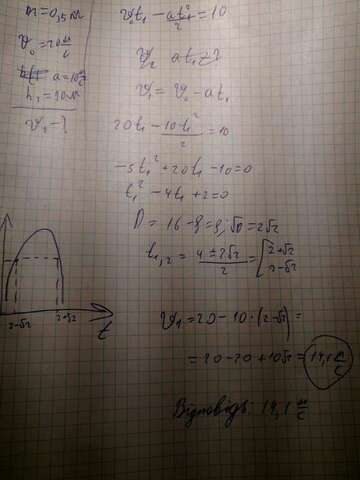 m=0,5м
v₀=20 м/с
a=10 м/с
h₁=10м
v₁-?
v₀t₁ - at₁²/2 = 10
v₁=v₀-at₁
20t₁ - 10t₁²/2 = 10
-5t₁²+20t₁-10=0
t₁²-4t₁+2=0
D = 16-8=8; √D=2√2
t₁,₂ = (4±2√2)/2 = [2+√2
2-√2
v₁=20-10·(2-√2)=
=20-20+10√2=14,1 м/с
Відповідь: 14,1 м/с
2-√2 2+√2 t